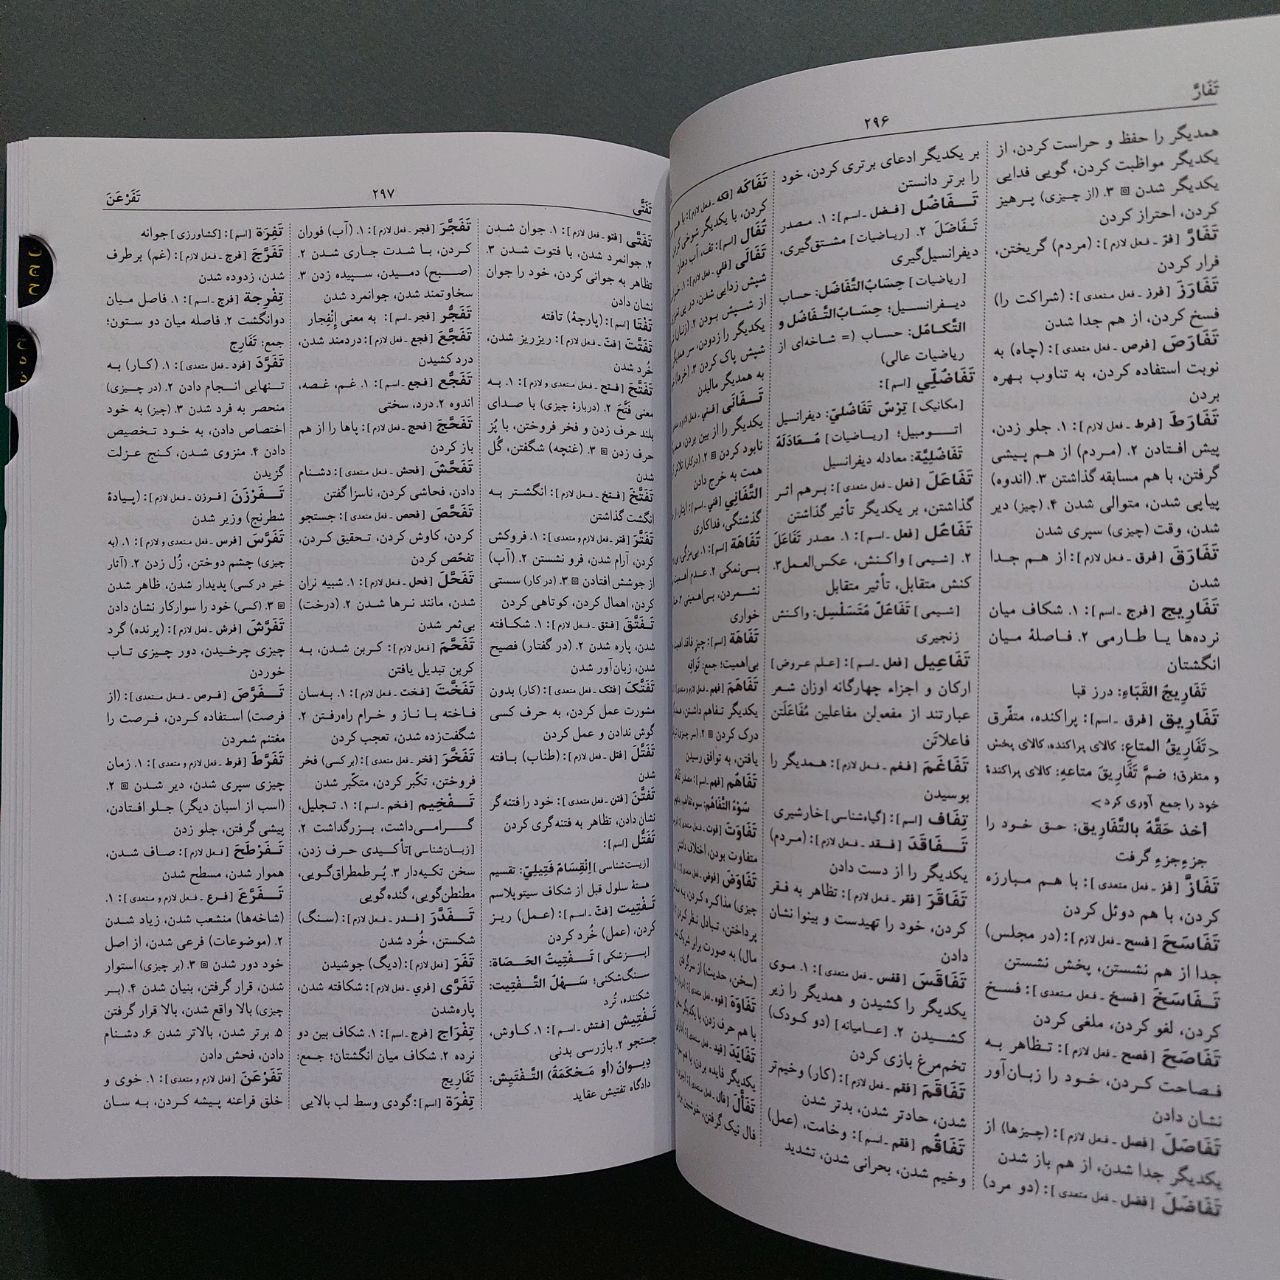 تَفَارَّ
۲۹۶
همدیگر را حفظ و حراست کردن، از
یکدیگر مواظبت کردن، گویی فدایی
یکدیگر شدن ▣ ۳. (از چیزی) پرهیز
کردن، احتراز کردن
تَفَارَّ [فرّ ـ فعل لازم]: (مردم) گریختن،
فرار کردن
تَفَارَزَ [فرز ـ فعل متعدی]: (شراکت را)
فسخ کردن، از هم جدا شدن
تَفَارَصَ [فرص ـ فعل متعدی]: (چاه) به
نوبت استفاده کردن، به تناوب بهره
بردن
تَفَارَطَ [فرط ـ فعل لازم]: ۱. جلو زدن،
پیش افتادن ۲. (مردم) از هم پیشی
گرفتن، با هم مسابقه گذاشتن ۳. (اندوه)
پیاپی شدن، متوالی شدن ۴. (چیز) دیر
شدن، وقت (چیزی) سپری شدن
تَفَارَقَ [فرق ـ فعل لازم]: از هم جدا
شدن
تَفَارِیج [فرج ـ اسم]: ۱. شکاف میان
نرده‌ها یا طارمی ۲. فاصلهٔ میان
انگشتان
تَفَارِیجُ القَبَاءِ: درز قبا
تَفَارِیق [فرق ـ اسم]: پراکنده، متفّرق
<تَفَارِیقُ المتاعِ: کالای پراکنده، کالای پخش
و متفرق؛ ضمَّ تَفَارِیقَ متاعهِ: کالای پراکندهٔ
خود را جمع آوری کرد>
أخذ حَقَّهُ بالتَّفَارِیق: حق خود را
جزءِجزءِ گرفت
تَفَازَّ [فز ـ فعل متعدی]: با هم مبارزه
کردن، با هم دوئل کردن
تَفَاسَحَ [فسح ـ فعل لازم]: (در مجلس)
جدا از هم نشستن، پخش نشستن
تَفَاسَخَ [فسخ ـ فعل متعدی]: فسخ
کردن، لغو کردن، ملغی کردن
تَفَاصَحَ [فصح ـ فعل لازم]: تظاهر به
فصاحت کردن، خود را زبان‌آور
نشان دادن
تَفَاصَلَ [فصل ـ فعل لازم]: (چیزها) از
یکدیگر جدا شدن، از هم باز شدن
تَفَاضَلَ [فضل ـ فعل متعدی]: (دو مرد)
بر یکدیگر ادعای برتری کردن، خود
را برتر دانستن
تَفَاضُل [فضل ـ اسم]: ۱. مصدر
تَفَاضَلَ ۲. [ریاضیات] مشتق‌گیری،
دیفرانسیل‌گیری
[ریاضیات] حِسَابُ‌التَّفَاضُل: حساب
دیفرانسیل؛ حِسَابُ‌التَّفَاضُل و
التَّکامُل: حساب (= شاخه‌ای از
ریاضیات عالی)
تَفَاضُلِیّ [اسم]:
[مکانیک] تِرْسٌ تَفَاضُلِیّ: دیفرانسیل
اتومبیل؛ [ریاضیات] مُعَادَلَة
تَفَاضُلِیَّة: معادله دیفرانسیل
تَفَاعَلَ [فعل ـ فعل متعدی]: برهم اثر
گذاشتن، بر یکدیگر تأثیر گذاشتن
تَفَاعُل [فعل ـ اسم]: ۱. مصدر تَفَاعَلَ
۲. [شیمی] واکنش، عکس‌العمل۳.
کنش متقابل، تأثیر متقابل
[شیمی] تَفَاعُلٌ مُتَسَلْسِل: واکنش
زنجیری
تَفَاعِیل [فعل ـ اسم]: [علم عروض]
ارکان و اجزاء چهارگانه اوزان شعر
عبارتند از مفعولن مفاعلین مُفَاعَلَتن
فاعلاتَن
تَفَاغَمَ [فغم ـ فعل لازم]: همدیگر را
بوسیدن
تِفَاف [اسم]: [گیاه‌شناسی] خارشیری
تَفَاقَدَ [فقد ـ فعل لازم]: (مردم)
یکدیگر را از دست دادن
تَفَاقَرَ [فقر ـ فعل لازم]: تظاهر به فقر
کردن، خود را تهیدست و بینوا نشان
دادن
تَفَاقَسَ [فقس ـ اسم]: ۱. موی
یکدیگر را کشیدن و همدیگر را زیر
کشیدن ۲. [عامیانه] (دو کودک)
تخم‌مرغ بازی کردن
تَفَاقَمَ [فقم ـ فعل لازم]: (کار) وخیم‌تر
شدن، حادتر شدن، بدتر شدن
تَفَاقُم [فقم ـ اسم]: وخامت، (عمل)
وخیم شدن، بحرانی شدن، تشدید
تَفَاکَه [فکه ـ فعل لازم]:
کردن، با یکدیگر شوخی
تُفَال [اسم]: تف، آب دهان
تَفَالَی [فلی ـ فعل لازم]: ۱.
شپش زدایی شدن،
از شپش بودن ۲.
یکدیگر را زدودن،
شپش پاک کردن ۳.
به همدیگر مالیدن
تَفَانَی
یکدیگر را از بین بردن،
نابود کردن ▣ ۲.
همت به خرج دادن
التَّفَانِي [فنی ـ اسم]:
گذشتگی، فداکاری
تَفَاهَة [اسم]: ۱.
بی‌نمکی ۲.
نشمردن، بی‌اهمیتی
خواری
تَفَاهَة [اسم]: چیز
بی‌اهمیت؛ جمع: تَوافِه
تَفَاهَمَ
یکدیگر تفاهم داشتن،
درک کردن ▣ ۲.
یافتن، به توافق رسیدن
تَفَاهُم [فهم ـ اسم]:
سُوْءُ التَّفَاهُم:
تَفَاوَتَ
متفاوت بودن، اختلاف داشتن
تَفَاوَضَ
چیزی) مذاکره کردن،
پرداختن، تبادل نظر
مال) به صورت برابر
(سخن، حدیث) از سر
تَفَاوَهَ
با هم حرف زدن،
تَفَایَدَ
یکدیگر فایده بردن،
تَفَأَّلَ
فال نیک گرفتن،
تَفَتَّی
۲۹۷
تَفَرْعَنَ
تَفَتَّی [فتو ـ فعل لازم]: ۱. جوان شدن
۲. جوانمرد شدن، با فتوت شدن ۳.
تظاهر به جوانی کردن، خود را جوان
نشان دادن
تَفْتَا [اسم]: (پارچهٔ) تافته
تَفَتَّتَ [فتّ ـ فعل لازم]: ریزریز شدن،
خُرد شدن
تَفَتَّحَ [فتح ـ فعل متعدی و لازم]: ۱. به
معنی فَتَّحَ ۲. (دربارهٔ چیزی) با صدای
بلند حرف زدن و فخر فروختن، با پُز
حرف زدن ▣ ۳. (غنچه) شگفتن، گُل
شدن
تَفَتَّخَ [فتخ ـ فعل لازم]: انگشتر به
انگشت گذاشتن
تَفَتَّرَ [فتر ـ فعل متعدی و لازم]: ۱. فروکش
کردن، آرام شدن، فرو نشستن ۲. (آب)
از جوشش افتادن ▣ ۳. (در کار) سستی
کردن، اهمال کردن، کوتاهی کردن
تَفَتَّقَ [فتق ـ فعل لازم]: ۱. شکافته
شدن، پاره شدن ۲. (در گفتار) فصیح
شدن، زبان‌آور شدن
تَفَتَّکَ [فتک ـ فعل متعدی]: (کار) بدون
مشورت عمل کردن، به حرف کسی
گوش ندادن و عمل کردن
تَفَتَّلَ [فتل ـ فعل لازم]: (طناب) بافته
شدن
تَفَتَّنَ [فتن ـ فعل متعدی]: خود را فتنه‌گر
نشان دادن، تظاهر به فتنه‌گری کردن
تَفَتُّل [اسم]:
[زیست‌شناسی] اِنْقِسَام فَتِیلِیّ: تقسیم
هستهٔ سلول قبل از شکاف سیتوپلاسم
تَفْتِیت [فتّ ـ اسم]: (عمل) ریز
کردن، (عمل) خُرد کردن
[پزشکی] تَفْتِیتُ الحَصَاة:
سنگ‌شکنی؛ سَهْلُ التَّفْتِیت:
شکننده، تُرد
تَفْتِیش [فتش ـ اسم]: ۱. کاوش،
جستجو ۲. بازرسی بدنی
دِیوانُ (أو مَحْکَمَةُ) التَّفْتِیش:
دادگاه تفتیش عقاید
تَفَجَّرَ [فجر ـ فعل لازم]: ۱. (آب) فوران
کردن، با شدت جاری شدن ۲.
(صبح) دمیدن، سپیده زدن ۳.
سخاوتمند شدن، جوانمرد شدن
تَفَجُّر [فجر ـ اسم]: به معنی إنْفِجار
تَفَجَّعَ [فجع ـ فعل لازم]: دردمند شدن،
درد کشیدن
تَفَجُّع [فجع ـ اسم]: ۱. غم، غصه،
اندوه ۲. درد، سختی
تَفَحَّجَ [فحج ـ فعل لازم]: پاها را از هم
باز کردن
تَفَحَّشَ [فحش ـ فعل متعدی]: دشنام
دادن، فحاشی کردن، ناسزا گفتن
تَفَحَّصَ [فحص ـ فعل متعدی]: جستجو
کردن، کاوش کردن، تحقیق کردن،
تفحّص کردن
تَفَحَّلَ [فحل ـ فعل لازم]: ۱. شبیه نران
شدن، مانند نرها شدن ۲. (درخت)
بی‌ثمر شدن
تَفَحَّمَ [فحم ـ فعل لازم]: کربن شدن، به
کربن تبدیل یافتن
تَفَخَّتَ [فخت ـ فعل لازم]: ۱. به‌سان
فاخته با ناز و خرام راه‌رفتن ۲.
شگفت‌زده شدن، تعجب کردن
تَفَخَّرَ [فخر ـ فعل متعدی]: (برکسی) فخر
فروختن، تکبّر کردن، متکبّر شدن
تَفْخِیم [فخم ـ اسم]: ۱. تجلیل،
گرامی‌داشت، بزرگداشت ۲.
[زبان‌شناسی] تأکیدی حرف زدن،
سخن تکیه‌دار ۳. پُرطمطراق‌گویی،
مطنطن‌گویی، گنده‌گویی
تَفَدَّرَ [فدر ـ فعل لازم]: (سنگ)
شکستن، خُرد شدن
تَفَرَ [فعل لازم]: (دیگ) جوشیدن
تَفَرَّی [فری ـ فعل لازم]: شکافته شدن،
پاره‌شدن
تِفْرَاج [فرج ـ اسم]: ۱. شکاف بین دو
نرده ۲. شکاف میان انگشتان؛ جمع:
تَفَارِیج
تِفْرَة [اسم]: گودی وسط لب بالایی
تَفِرَة [اسم]: [کشاورزی] جوانه
تَفَرَّجَ [فرج ـ فعل لازم]: (غم) برطرف
شدن، زدوده شدن
تِفْرِجة [فرج ـ اسم]: ۱. فاصل میان
دوانگشت ۲. فاصله میان دو ستون؛
جمع: تَفَارِج
تَفَرَّدَ [فرد ـ فعل متعدی]: ۱. (کار) به
تنهایی انجام دادن ۲. (در چیزی)
منحصر به فرد شدن ۳. (چیز) به خود
اختصاص دادن، به خود تخصیص
دادن ۴. منزوی شدن، کنج عزلت
گزیدن
تَفَرْزَنَ [فرزن ـ فعل لازم]: (پیادهٔ
شطرنج) وزیر شدن
تَفَرَّسَ [فرس ـ فعل متعدی و لازم]: ۱. (به
چیزی) چشم دوختن، زُل زدن ۲. (آثار
خیر در کسی) پدیدار شدن، ظاهر شدن
▣ ۳. (کسی) خود را سوارکار نشان دادن
تَفَرَّشَ [فرش ـ فعل لازم]: (پرنده) گرد
چیزی چرخیدن، دور چیزی تاب
خوردن
تَفَرَّصَ [فرص ـ فعل متعدی]: (از
فرصت) استفاده کردن، فرصت را
مغتنم شمردن
تَفَرَّطَ [فرط ـ فعل لازم و متعدی]: ۱. زمان
چیزی سپری شدن، دیر شدن ▣ ۲.
(اسب از اسبان دیگر) جلو افتادن،
پیشی گرفتن، جلو زدن
تَفَرْطَحَ [فعل لازم]: صاف شدن،
هموار شدن، مسطح شدن
تَفَرَّعَ [فرع ـ فعل لازم و متعدی]: ۱.
(شاخه‌ها) منشعب شدن، زیاد شدن
۲. (موضوعات) فرعی شدن، از اصل
خود دور شدن ▣ ۳. (بر چیزی) استوار
شدن، قرار گرفتن، بنیان شدن ۴. (بر
چیزی) بالا واقع شدن، بالا قرار گرفتن
۵. برتر شدن، بالاتر شدن ۶. دشنام
دادن، فحش دادن
تَفَرْعَنَ [فعل لازم و متعدی]: ۱. خوی و
خلق فراعنه پیشه کردن، به سان